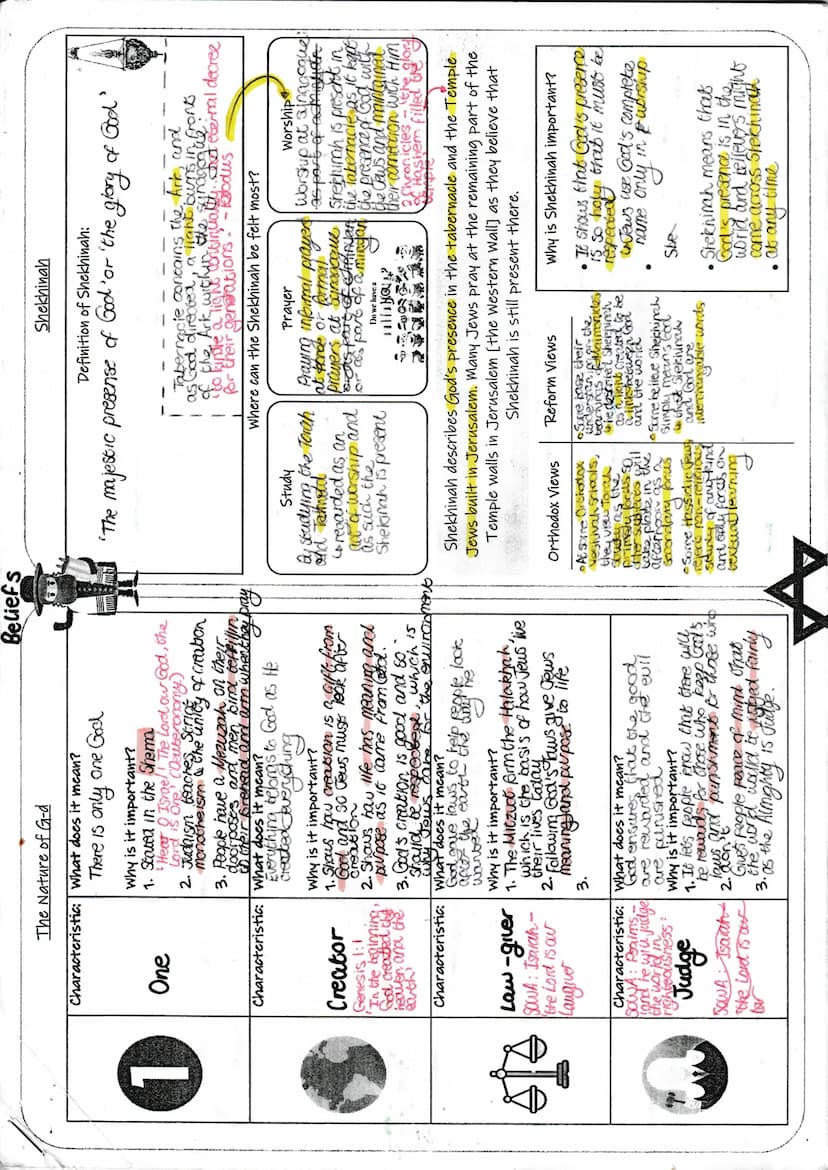 Beliefs
The Nature of G-d
Characteristic:
One
What does it mean?
There is only one God
Why is it important?
1. Stated in the Shema
'Hear O Israel! The Lord our God, the
Lord is One' (Deuteronomy)
2. Judaism teaches strict
monotheism & the unity of creation
3. People have a Mezuzah on their
doorposts and men bind tefillin
to their forehead and arm when they pray
Characteristic:
Creator
Genesis 1:1
'In the beginning,
God created the
heaven and the
earth'
What does it mean?
Everything belongs to God as He
created everything
Why is it important?
1. Shows how creation is a gift from
God and so Jews must look after
creation
2. Shows how life has meaning and
purpose as it came from God.
3. God's creation is good and so
should be respected, which is
why Jews care for the environment
Characteristic:
Law-giver
SOWA: Isaiah -
'the Lord is our
lawgiver'
What does it mean?
God gave laws to help people look
after the earth the way he
wanted
Why is it important?
1. The Mitzvot form the Halakhah,
which is the basis of how Jews live
their lives today
2. Following God's laws give Jews
meaning and purpose to life
3.
Characteristic:
SOWA: Psalms -
'and he will judge
the world in
righteousness'
Judge
SOWA: Isaiah -
'the Lord is our
What does it mean?
God ensures that the good
are rewarded and the evil
are punished
Why is it important?
1. It lets people know that there will
be rewards for those who keep God's
laws and punishment for those who
don't
2. Gives people peace of mind that
the world would be judged fairly
3. as the Almighty is Judge.
Shekhinah
Definition of Shekhinah:
'The majestic presense of God' or 'the glory of God'
Tabernacle contains the Ark, and
as God directed, a light burns in front
of the Ark within the synagogue:
'to kindle a light continually, an eternal decree
for their generations' - Exodus
Where can the Shekhinah be felt most?
Study
By studying the Torah
and Talmud
is regarded as an
act of worship and
as such the
Shekhinah is present
Prayer
Praying informal prayers
at home or formal
prayers at synagogue
or as part of a minyan
Do we have a
Worship
Worship at synagogue
as part of a minyan
Shekhinah is present in
the tabernacle as it kept
the presence of God with
the Jews and maintained
their connection with Him
2 Chronicles - 'the glory
of Hashem filled the
temple'
Shekhinah describes God's presence in the tabernacle and the Temple
Jews built in Jerusalem. Many Jews pray at the remaining part of the
Temple walls in Jerusalem (the Western Wall) as they believe that
Shekhinah is still present there.
Orthodox Views
• At some Orthodox
Yeshivah schools,
they view Torah
study as the
primary focus so
take place in the
afternoon as a
secondary focus
• Some Hasidic Jews
study of any kind
and only focus on
Reform Views
• Some base their
teachings of Maimonides
as a light created to be
a link between God
and the world
• Some believe Shekhinah
simply means God
so that Shekhinah
and God are
interchangeable words
Why is Shekhinah important?
• It shows that God's presence
is so holy that it must be
respected
Jews use God's complete
name only in worship
• She
• Shekhinah means that
God's presence is in the
world and believers might
come across Shekhinah
• at any time